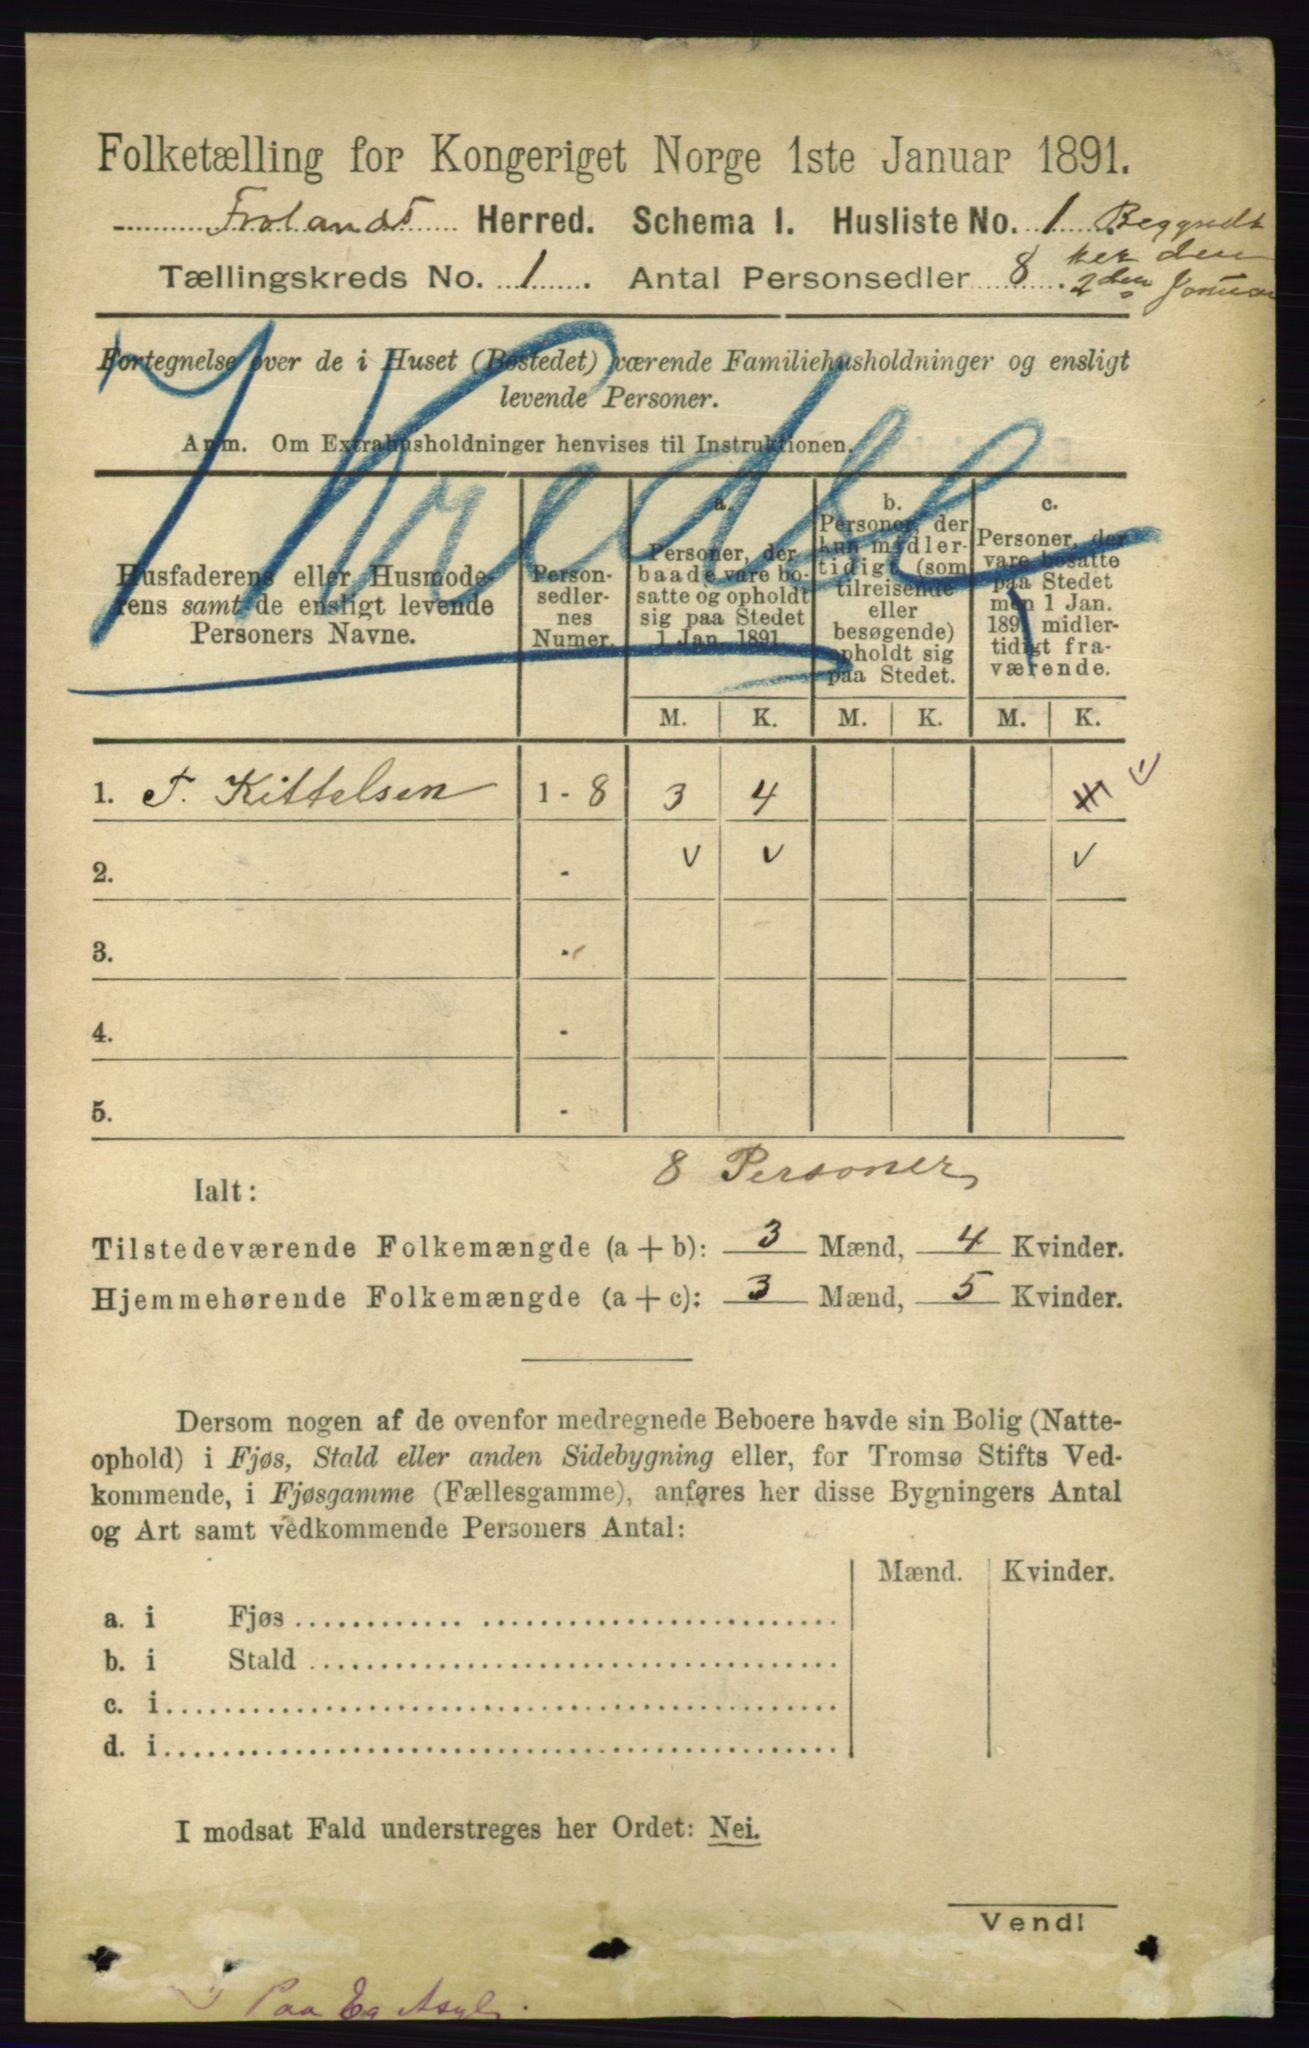 Folketælling for Kongeriget Norge 1ste Januar 1891.
Frolands Herred. Schema 1. Husliste No. 1
Tællingskreds No. 1. Antal Personsedler 8.
den
2den Januar
1 Kreds
Fortegnelse over de i Huset (Bostedet) værende Familiehusholdninger og ensligt
levende Personer.
Anm. Om Extrahusholdninger henvises til Instruktionen.
Husfaderens eller Husmode-
rens samt de ensligt levende
Personers Navne.
Person-
sedler-
nes
Numer.
a.
Personer, der
baade vare bo-
satte og opholdt
sig paa Stedet
1 Jan. 1891.
b.
Personer, der
kun midler-
tidigt (som
tilreisende
eller
besøgende)
opholdt sig
paa Stedet.
c.
Personer, der
vare bosatte
paa Stedet
men 1 Jan.
1891 midler-
tidigt fra-
værende.
M. K. M. K. M. K.
1. T. Kittelsen 1 - 8 3 4
2. - v v v
3. -
4. -
5. -
8 Personer
Ialt:
Tilstedeværende Folkemængde (a + b): 3 Mænd, 4 Kvinder.
Hjemmehørende Folkemængde (a + c): 3 Mænd, 5 Kvinder.
Dersom nogen af de ovenfor medregnede Beboere havde sin Bolig (Natte-
ophold) i Fjøs, Stald eller anden Sidebygning eller, for Tromsø Stifts Ved-
kommende, i Fjøsgamme (Fællesgamme), anføres her disse Bygningers Antal
og Art samt vedkommende Personers Antal:
Mænd. Kvinder.
a. i Fjøs
b. i Stald
c. i
d. i
I modsat Fald understreges her Ordet: Nei.
Vend!
Paa Eg Asyl.